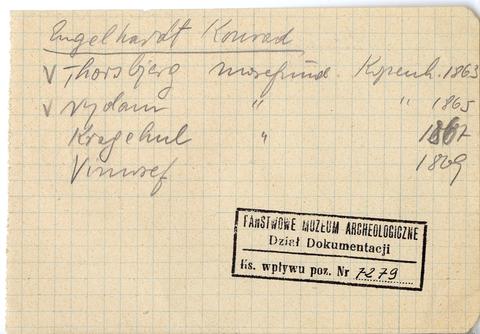 Engelhardt Konrad
V Thorsbjerg mosefund. Kopenh. 1863
V Nydam " " 1865
Kragehul " 1867
Vimosef 1869
PAŃSTWOWE MUZEUM ARCHEOLOGICZNE
Dział Dokumentacji
Ks. wpływu poz. Nr 7279